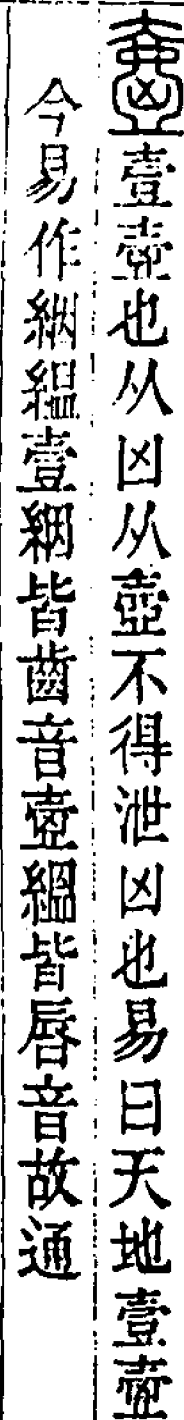 壹壺也从凶从壺不得泄凶也易曰天地壹壺
今易作絪縕壹絪皆齒音壺縕皆唇音故通